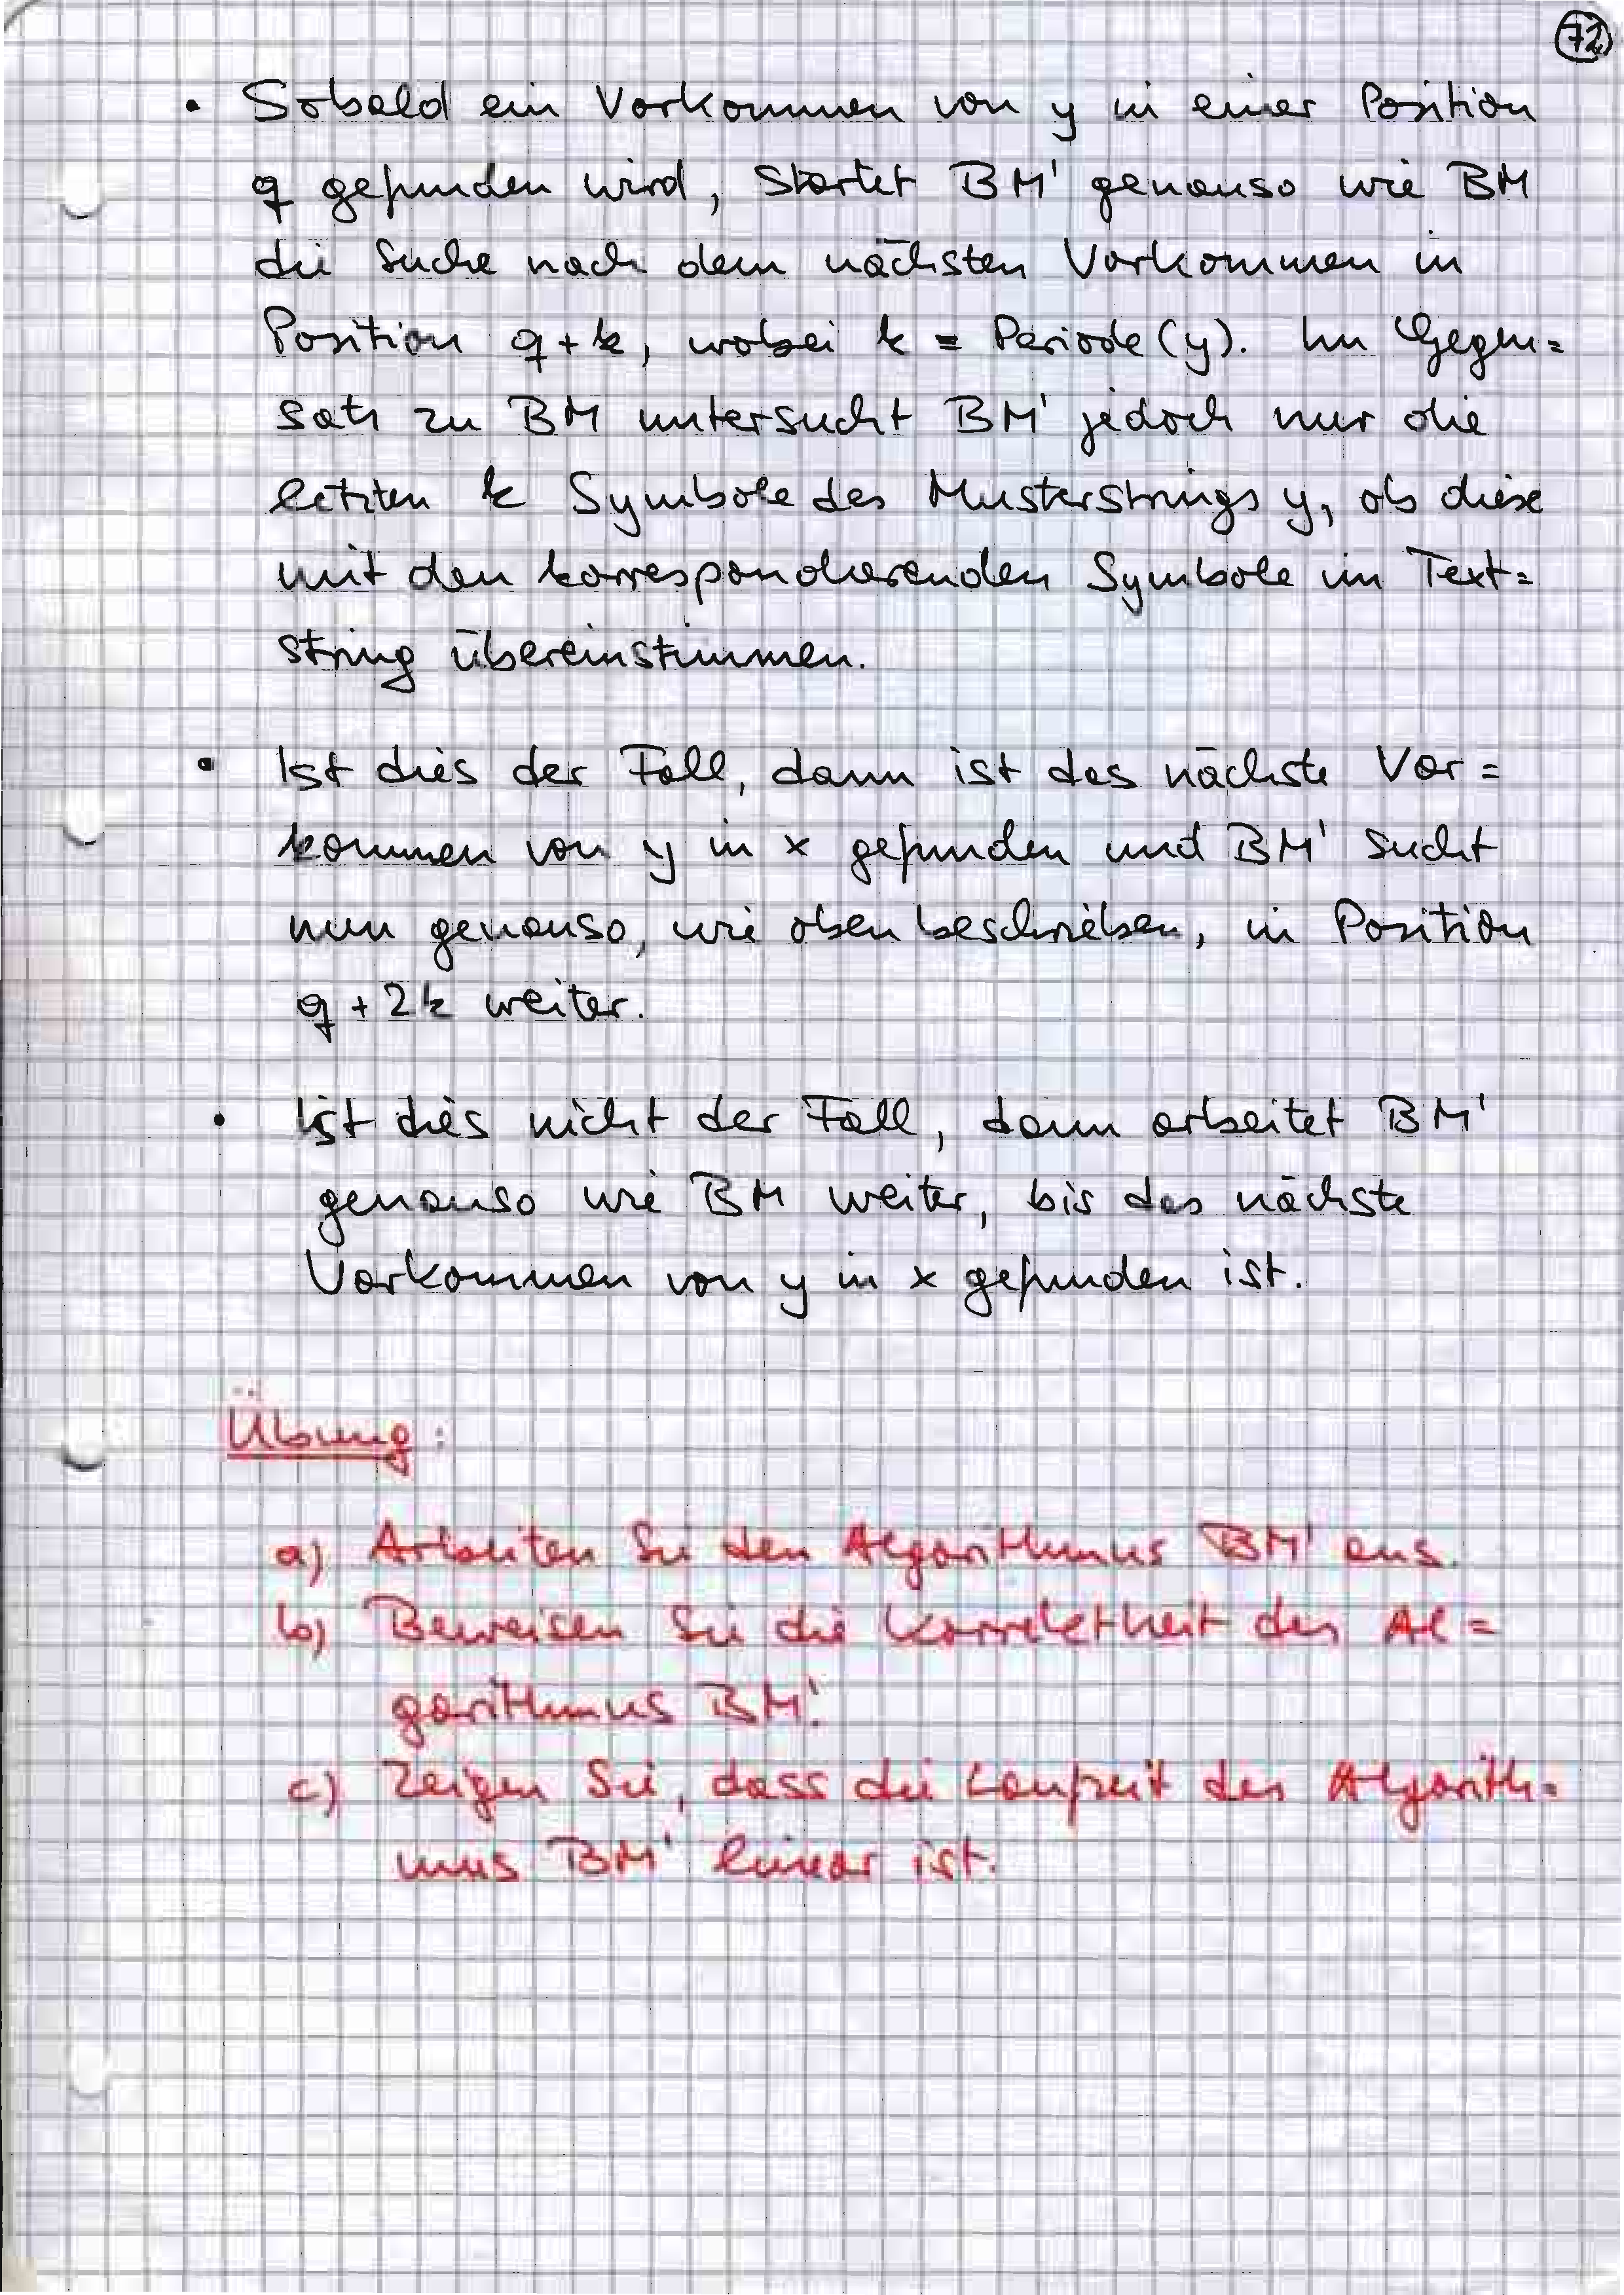 72
• Sobald ein Vorkommen von y in einer Position
q gefunden wird, startet BM' genauso wie BM
die Suche nach dem nächsten Vorkommen in
Position q+k, wobei k = Periode(y). Im Gegen=
satz zu BM untersucht BM' jedoch nur die
letzten k Symbole des Musterstrings y, ob diese
mit den korrespondierenden Symbole im Text=
string übereinstimmen.
• Ist dies der Fall, dann ist das nächste Vor=
kommen von y in x gefunden und BM' sucht
nun genauso, wie oben beschrieben, in Position
q+2k weiter.
• Ist dies nicht der Fall, dann arbeitet BM'
genauso wie BM weiter, bis das nächste
Vorkommen von y in x gefunden ist.
Übung:
a) Arbeiten Sie den Algorithmus BM' aus.
b) Beweisen Sie die Korrektheit des Al=
gorithmus BM'.
c) Zeigen Sie, dass die Laufzeit des Algorith=
mus BM' linear ist.